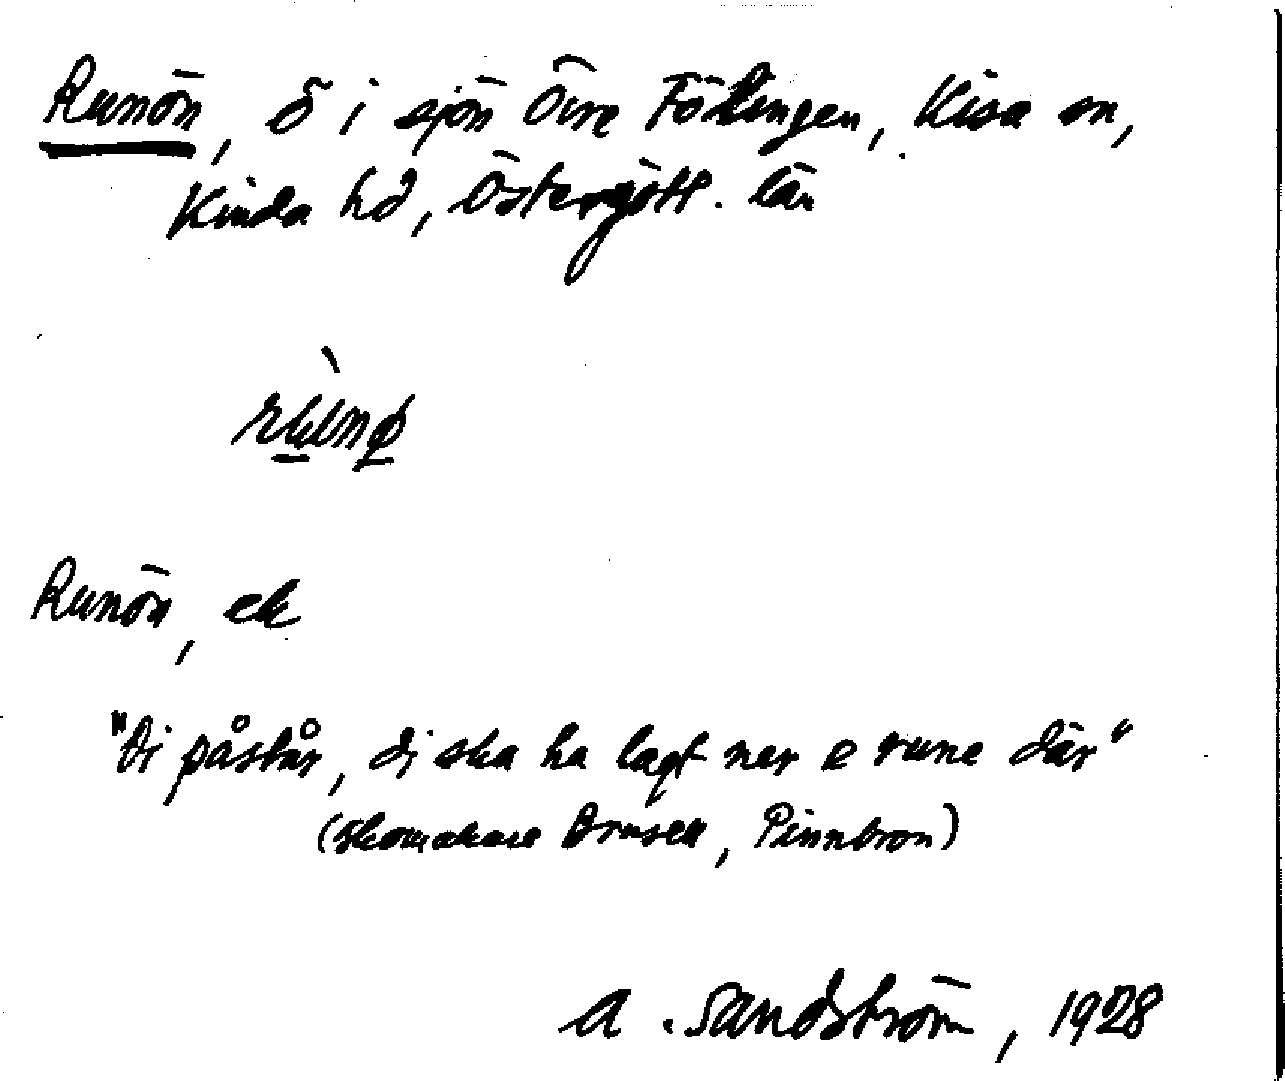 Runön, ö i sjön Övre Föllingen, Kisa sn,
Kinda hd, Östergötl. län
Runön, ek
"Di påstår, di ska ha lagt ner e rune där"
(Skomakare Brusell, Pinnbron)
A. Sandström, 1928